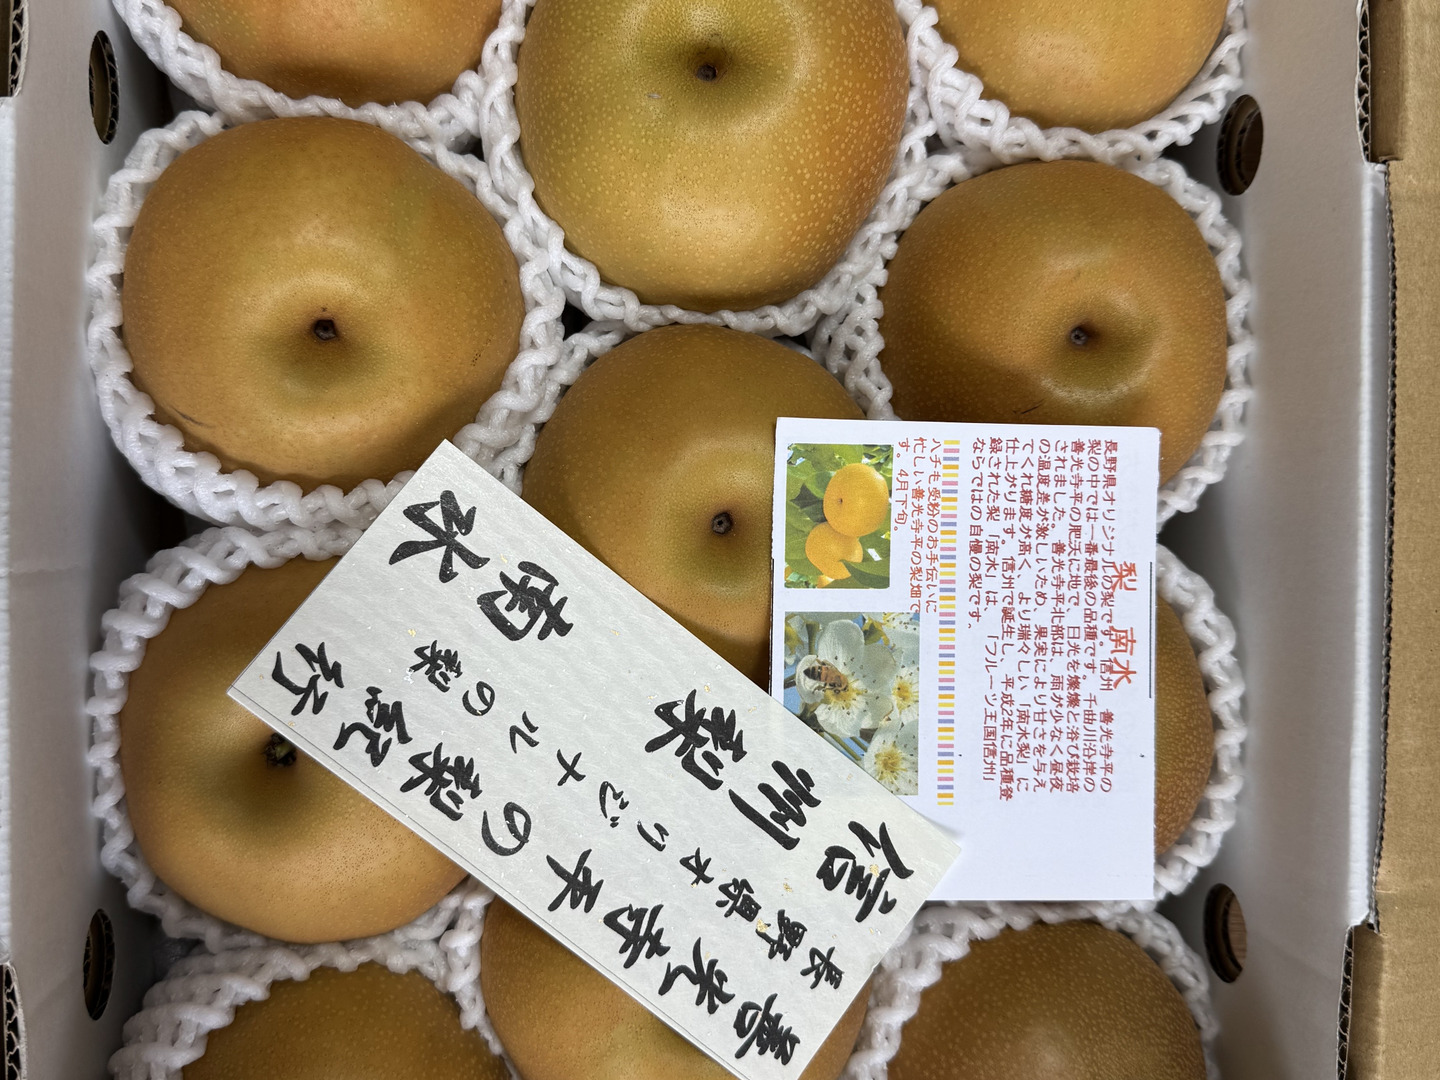 梨 南水
長野県オリジナルの梨です。信州 善光寺平の
梨の中では一番最後の品種です。千曲川沿岸の
善光寺平の肥沃に地で、日光を燦燦と浴び栽培
されました。善光寺平北部は、雨が少なく昼夜
の温度差が激しいため、果実により甘さを与え
てくれ糖度が高く、より瑞々しい「南水梨」に
仕上がります。信州で誕生し、平成2年に品種登
録された梨「南水」は、「フルーツ王国信州」
ならではの自慢の梨です。
ハチも受粉のお手伝いに
忙しい善光寺平の梨畑で
す。4月下旬。
信州梨 南水
長野県オリジナルの梨
善光寺平の梨